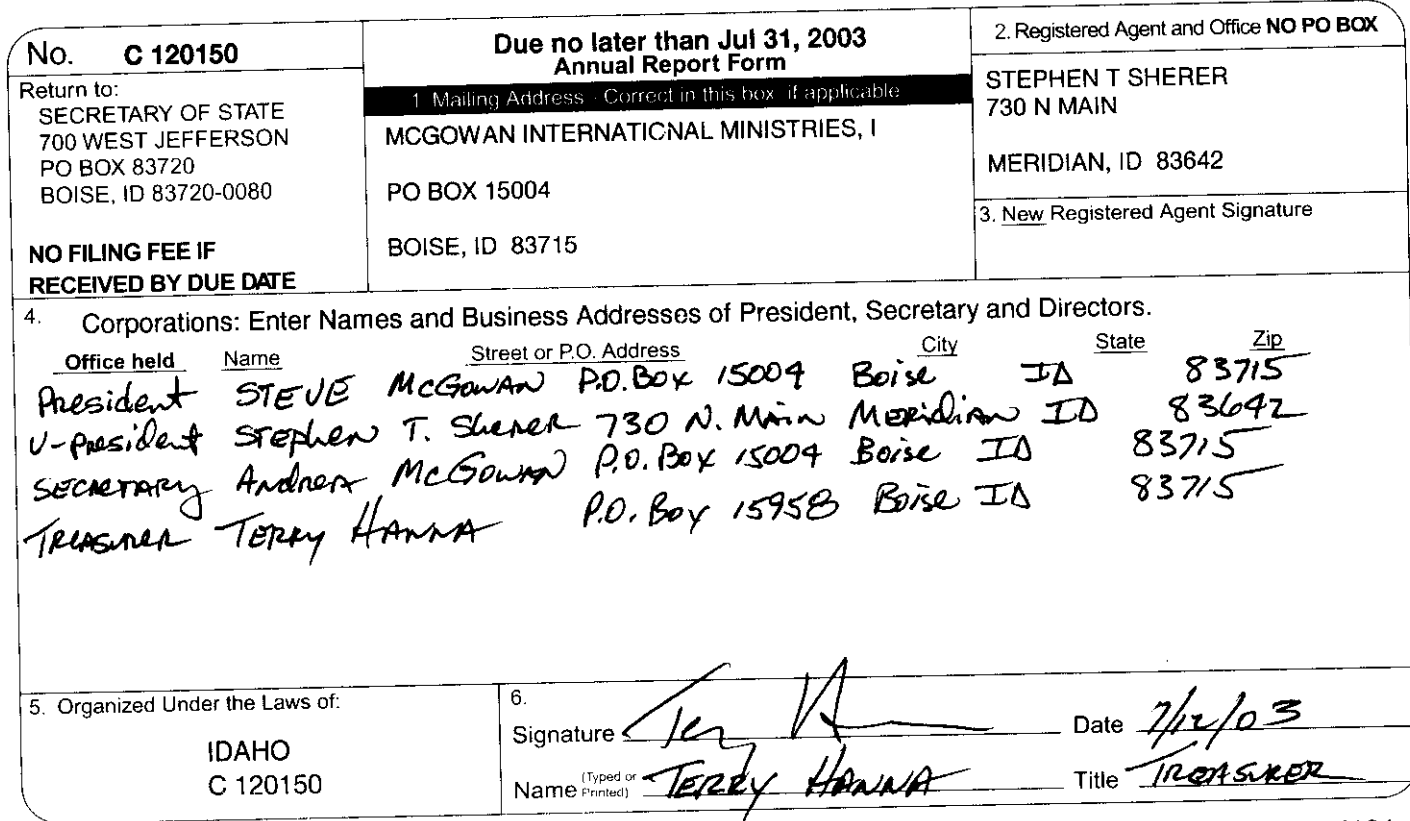 No. C 120150
Return to:
SECRETARY OF STATE
700 WEST JEFFERSON
PO BOX 83720
BOISE, ID 83720-0080
NO FILING FEE IF
RECEIVED BY DUE DATE
Due no later than Jul 31, 2003
Annual Report Form
1 Mailing Address - Correct in this box if applicable
MCGOWAN INTERNATIONAL MINISTRIES, I
PO BOX 15004
BOISE, ID 83715
2. Registered Agent and Office NO PO BOX
STEPHEN T SHERER
730 N MAIN
MERIDIAN, ID 83642
3. New Registered Agent Signature
4. Corporations: Enter Names and Business Addresses of President, Secretary and Directors.
Office held Name Street or P.O. Address City State Zip
President STEVE McGowan P.O. Box 15004 Boise ID 83715
V-President Stephen T. Sherer 730 N. Main Meridian ID 83642
Secretary Andrea McGowan P.O. Box 15004 Boise ID 83715
Treasurer Terry Hanna P.O. Box 15958 Boise ID 83715
5. Organized Under the Laws of:
IDAHO
C 120150
6.
Signature Terry H
Date 7/12/03
Name (Typed or Printed) TERRY HANNA
Title TREASURER